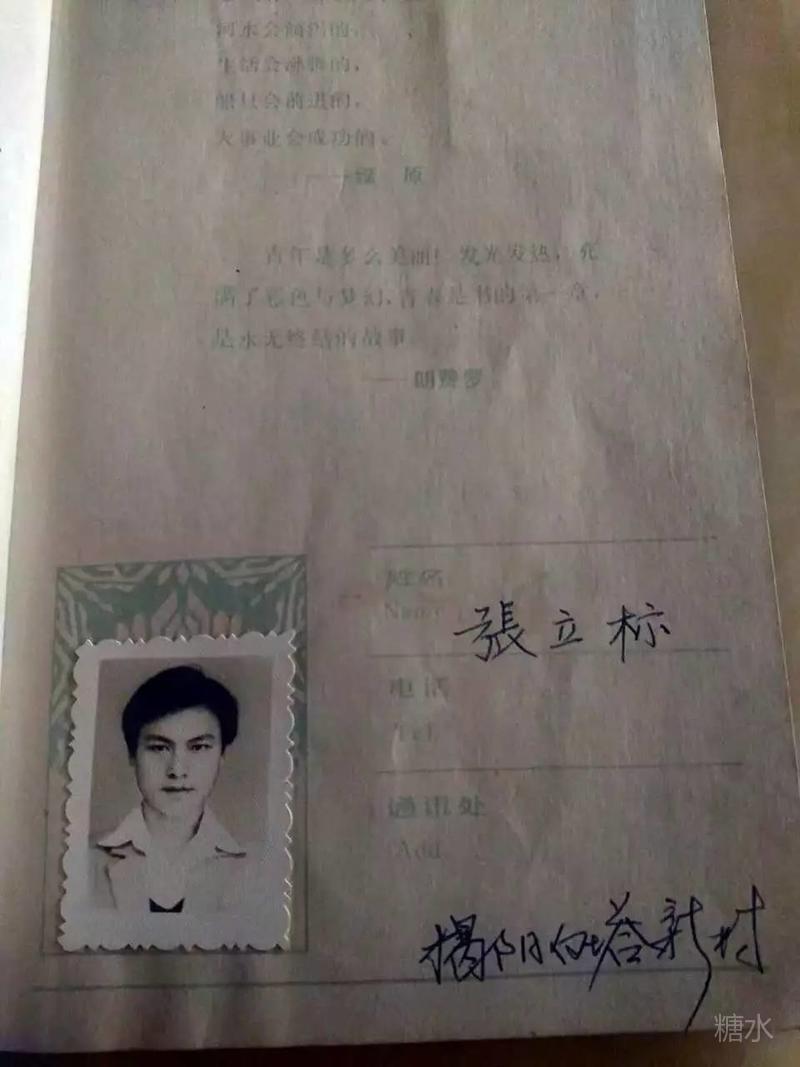 河水会倾泻的,
生活会沸腾的,
船只会前进的,
大事业会成功的。
——绿 原
青年是多么美丽!发光发热,充
满了彩色与梦幻,青春是书的第一章,
是永无终结的故事
——朗费罗
姓名
Name
張立标
电话
Tel
通讯处
Add
揭阳白塔新村
糖水